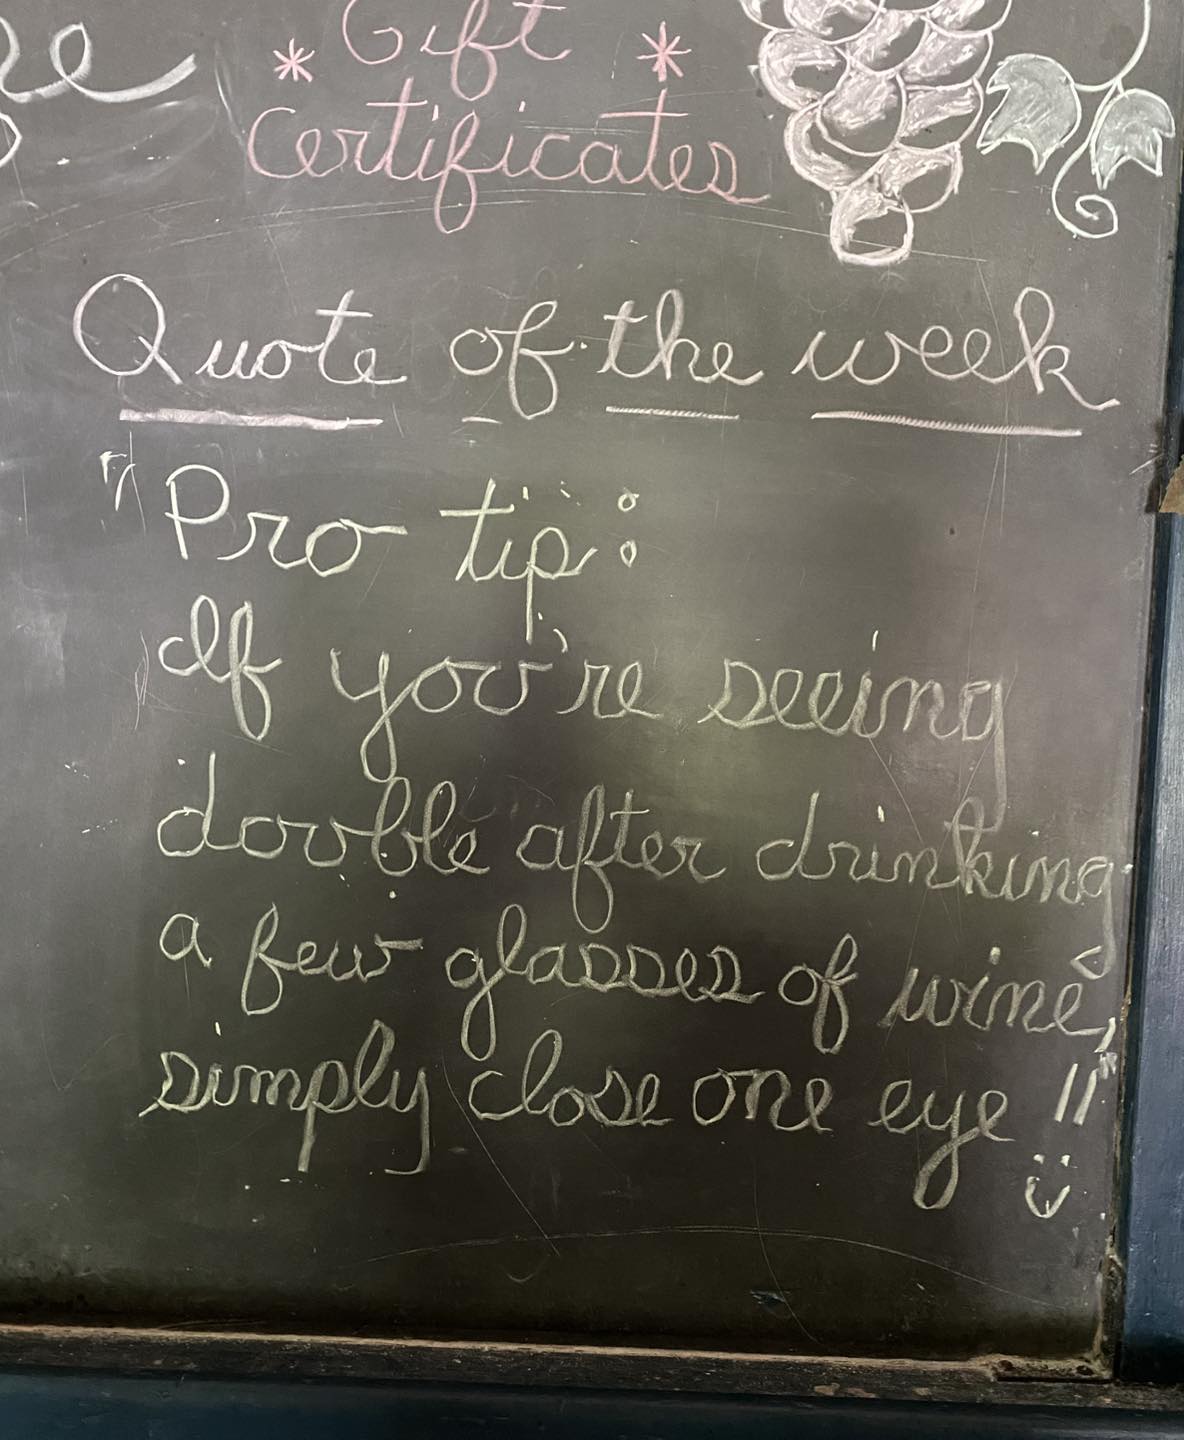 * Gift *
Certificates
Quote of the week
"Pro tip:
If you're seeing
double after drinking
a few glasses of wine,
simply close one eye !!"